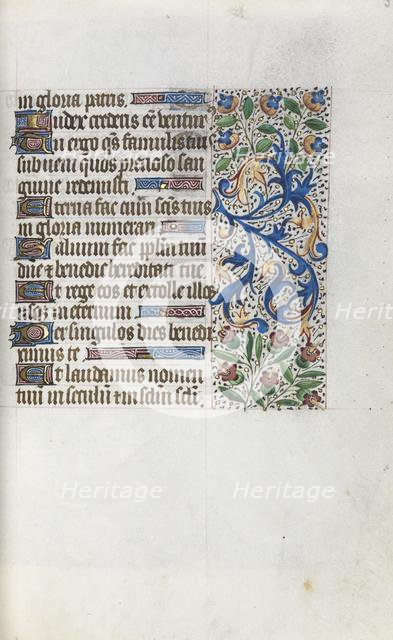 in gloria patris.
Iudex crederis eē ventur9
Te ergo qs famulis tuis
subueni quos precioso san
guine redemisti
Eterna fac cum scīs tuis
in gloria numerari
Saluum fac pplm tuum
dn̄e et benedic hereditati tue
Et rege eos et extolle illos
in eternum
Per singulos dies benedi
cimus te
Et laudamus nomen
tuū in seculū et in sclm scli.
Heritage
Heritage
Heritage
Heritage
Heritage
Heritage